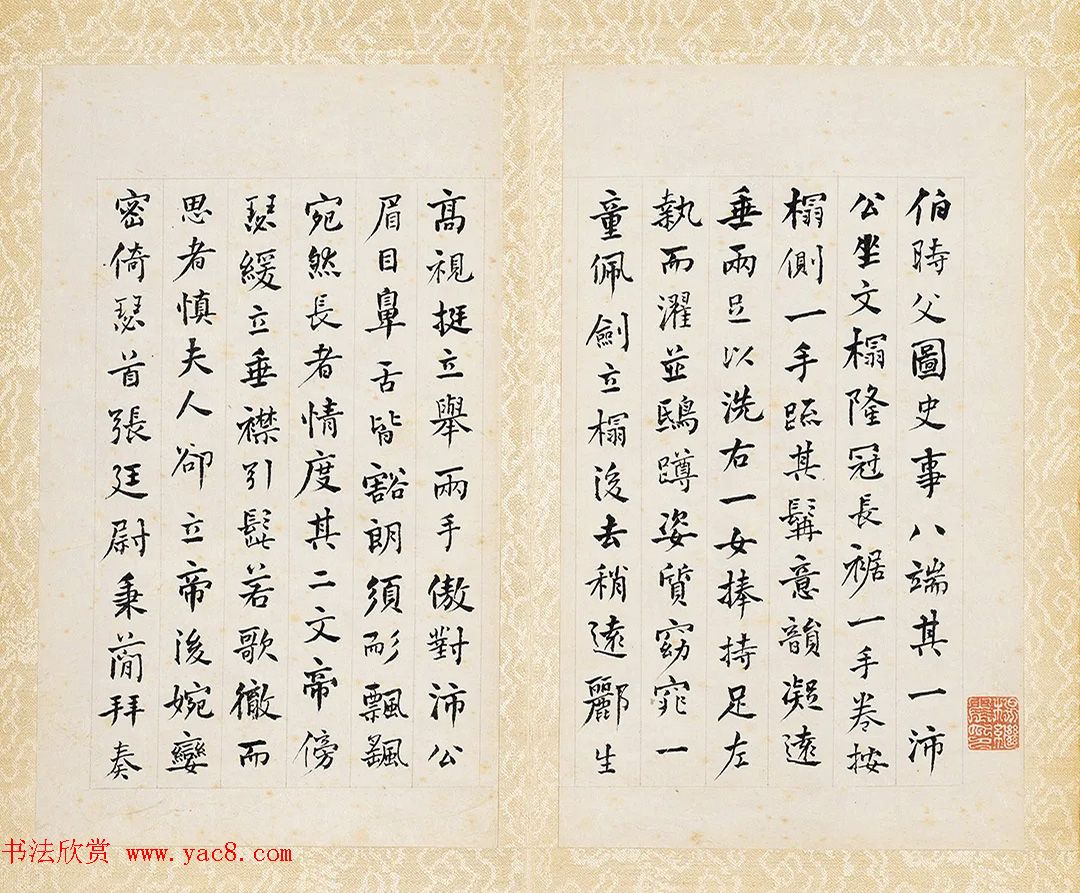 伯時父圖史事八端其一沛
公坐文榻隆冠長裾一手卷按
榻側一手䟽其髯意韻凝遠
垂兩足以洗右一女捧持足左
執而濯並鴟蹲姿質窈窕一
童佩劍立榻後去稍遠酈生
高視挺立舉兩手傲對沛公
眉目鼻舌皆豁朗須形飄颻
宛然長者情度其二文帝傍
瑟緩立垂襟引髭若歌徹而
思者慎夫人卻立帝後婉孌
密倚瑟首張廷尉秉蕳拜奏
书法欣赏 www.yac8.com